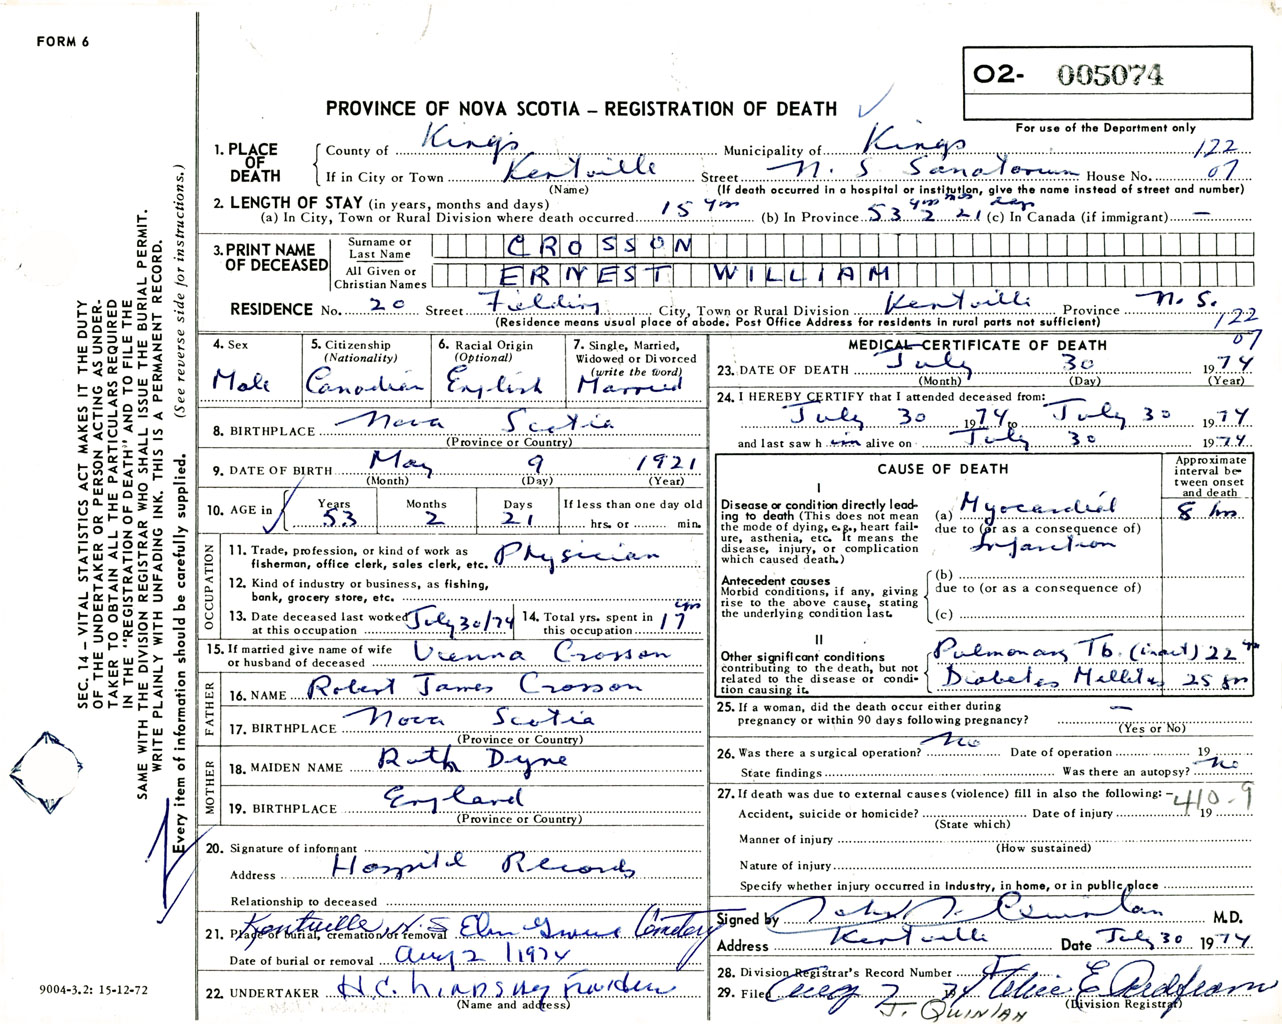 FORM 6
O2- 005074
PROVINCE OF NOVA SCOTIA – REGISTRATION OF DEATH
For use of the Department only
1. PLACE OF DEATH
County of Kings Municipality of Kings 122
If in City or Town Kentville Street N. S Sanatorium House No. 07
(Name) (If death occurred in a hospital or institution, give the name instead of street and number)
2. LENGTH OF STAY (in years, months and days)
(a) In City, Town or Rural Division where death occurred 15 yrs (b) In Province 53 yrs 2 mos 21 days (c) In Canada (if immigrant) —
3. PRINT NAME OF DECEASED
Surname or Last Name CROSSON
All Given or Christian Names ERNEST WILLIAM
RESIDENCE No. 20 Street Fielding City, Town or Rural Division Kentville Province N. S.
(Residence means usual place of abode. Post Office Address for residents in rural parts not sufficient) 122
07
4. Sex
Male
5. Citizenship
(Nationality)
Canadian
6. Racial Origin
(Optional)
English
7. Single, Married,
Widowed or Divorced
(write the word)
Married
8. BIRTHPLACE Nova Scotia
(Province or Country)
9. DATE OF BIRTH May 9 1921
(Month) (Day) (Year)
10. AGE in
Years Months Days If less than one day old
53 2 21 hrs. or min.
OCCUPATION
11. Trade, profession, or kind of work as
fisherman, office clerk, sales clerk, etc. Physician
12. Kind of industry or business, as fishing,
bank, grocery store, etc.
13. Date deceased last worked
at this occupation July 30/74
14. Total yrs. spent in
this occupation 17 yrs
15. If married give name of wife
or husband of deceased Vienna Crosson
FATHER
16. NAME Robert James Crosson
17. BIRTHPLACE Nova Scotia
(Province or Country)
MOTHER
18. MAIDEN NAME Ruth Dyne
19. BIRTHPLACE England
(Province or Country)
20. Signature of informant
Hospital Records
Address
Relationship to deceased
21. Place of burial, cremation or removal Kentville, N. S Elm Grove Cemetery
Date of burial or removal Aug 2 1974
22. UNDERTAKER H.C. Lindsay
(Name and address)
MEDICAL CERTIFICATE OF DEATH
23. DATE OF DEATH July 30 1974
(Month) (Day) (Year)
24. I HEREBY CERTIFY that I attended deceased from:
July 30 1974 to July 30 1974
and last saw him alive on July 30 1974
CAUSE OF DEATH
Approximate
interval be-
tween onset
and death
I
Disease or condition directly lead-
ing to death (This does not mean
the mode of dying, e.g., heart fail-
ure, asthenia, etc. It means the
disease, injury, or complication
which caused death.)
(a) Myocardial 8 hrs
due to (or as a consequence of)
Infarction
Antecedent causes
Morbid conditions, if any, giving
rise to the above cause, stating
the underlying condition last.
(b)
due to (or as a consequence of)
(c)
II
Other significant conditions
contributing to the death, but not
related to the disease or condi-
tion causing it.
Pulmonary Tb. (inact) 22 yr
Diabetes Mellitus 25 yrs
25. If a woman, did the death occur either during
pregnancy or within 90 days following pregnancy? —
(Yes or No)
26. Was there a surgical operation? No Date of operation 19
State findings Was there an autopsy? No
27. If death was due to external causes (violence) fill in also the following: – 410-9
Accident, suicide or homicide? Date of injury 19
(State which)
Manner of injury
(How sustained)
Nature of injury
Specify whether injury occurred in industry, in home, or in public place
Signed by John J. Quinlan M.D.
Address Kentville Date July 30 1974
28. Division Registrar's Record Number
29. Filed Aug 2
(Division Registrar)
J. QUINLAN
SEC. 14 – VITAL STATISTICS ACT MAKES IT THE DUTY
OF THE UNDERTAKER OR PERSON ACTING AS UNDER-
TAKER TO OBTAIN ALL THE PARTICULARS REQUIRED
IN THE "REGISTRATION OF DEATH" AND TO FILE THE
SAME WITH THE DIVISION REGISTRAR WHO SHALL ISSUE THE BURIAL PERMIT.
WRITE PLAINLY WITH UNFADING INK. THIS IS A PERMANENT RECORD.
Every item of information should be carefully supplied. (See reverse side for instructions.)
9004-3.2: 15-12-72